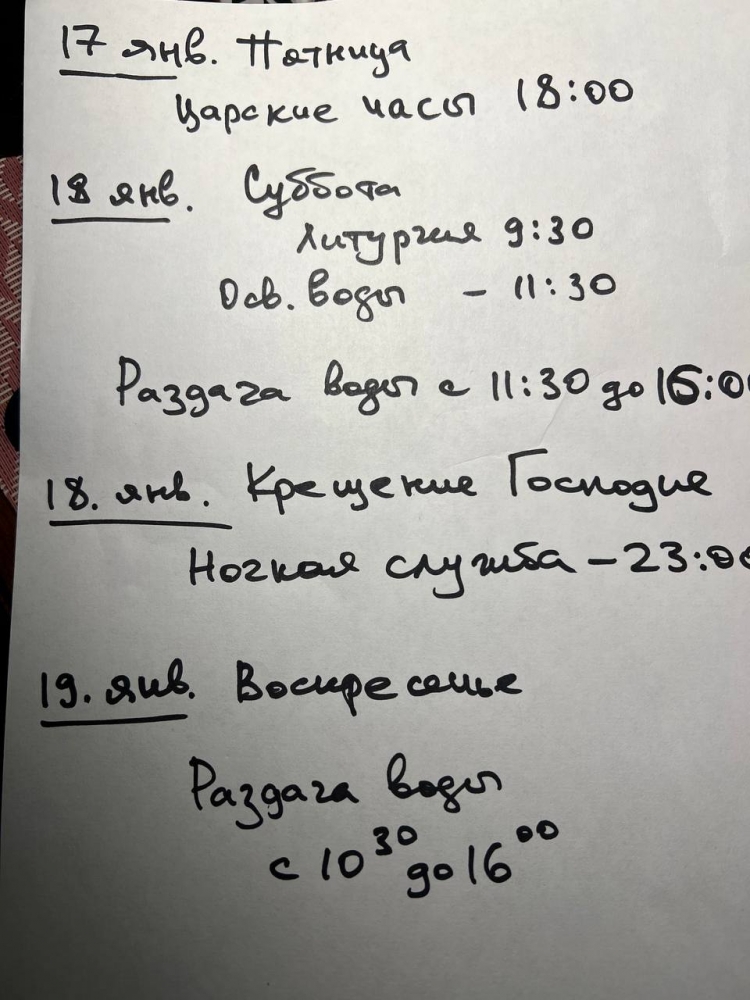 17 янв. Пятница
Царские часы 18:00
18 янв. Суббота
Литургия 9:30
Осв. воды - 11:30
Раздача воды с 11:30 до 16:00
18. янв. Крещение Господне
Ночная служба - 23:00
19. янв. Воскресенье
Раздача воды
с 10 30 до 16 00